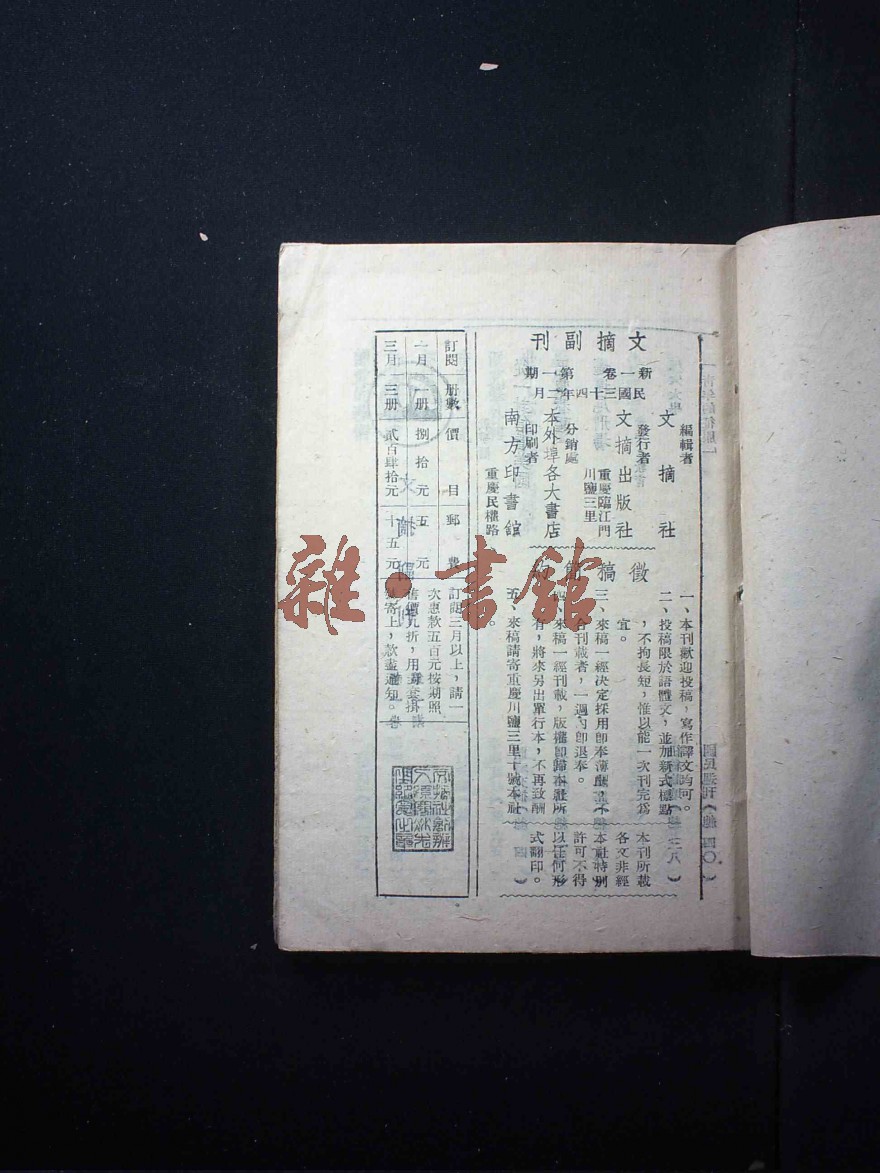 文摘副刊
新一卷第一期
民國三十四年二月
編輯者
文摘社
發行者
文摘出版社
重慶臨江門
川鹽三里
分銷處
本外埠各大書店
印刷者
南方印書館
重慶民權路
徵稿
一、本刊歡迎投稿，寫作譯文均可。
二、投稿限於語體文，並加新式標點
，不拘長短，惟以能一次刊完為
宜。
三、來稿一經決定採用即奉薄酬，不
合刊載者，一週內即退奉。
四、來稿一經刊載，版權即歸本社所
有，將來另出單行本，不再致酬
。
五、來稿請寄重慶川鹽三里十號本社
本刊所載
各文非經
本社特別
許可不得
以任何形
式翻印。
訂閱 册數 價目 郵費
一月 一册 捌拾元 五元
三月 三册 貳百肆拾元 十五元
訂閱三月以上，請一
次惠款五百元按期照
售價九折，用掛
寄上，款盡通知。
雜·書館